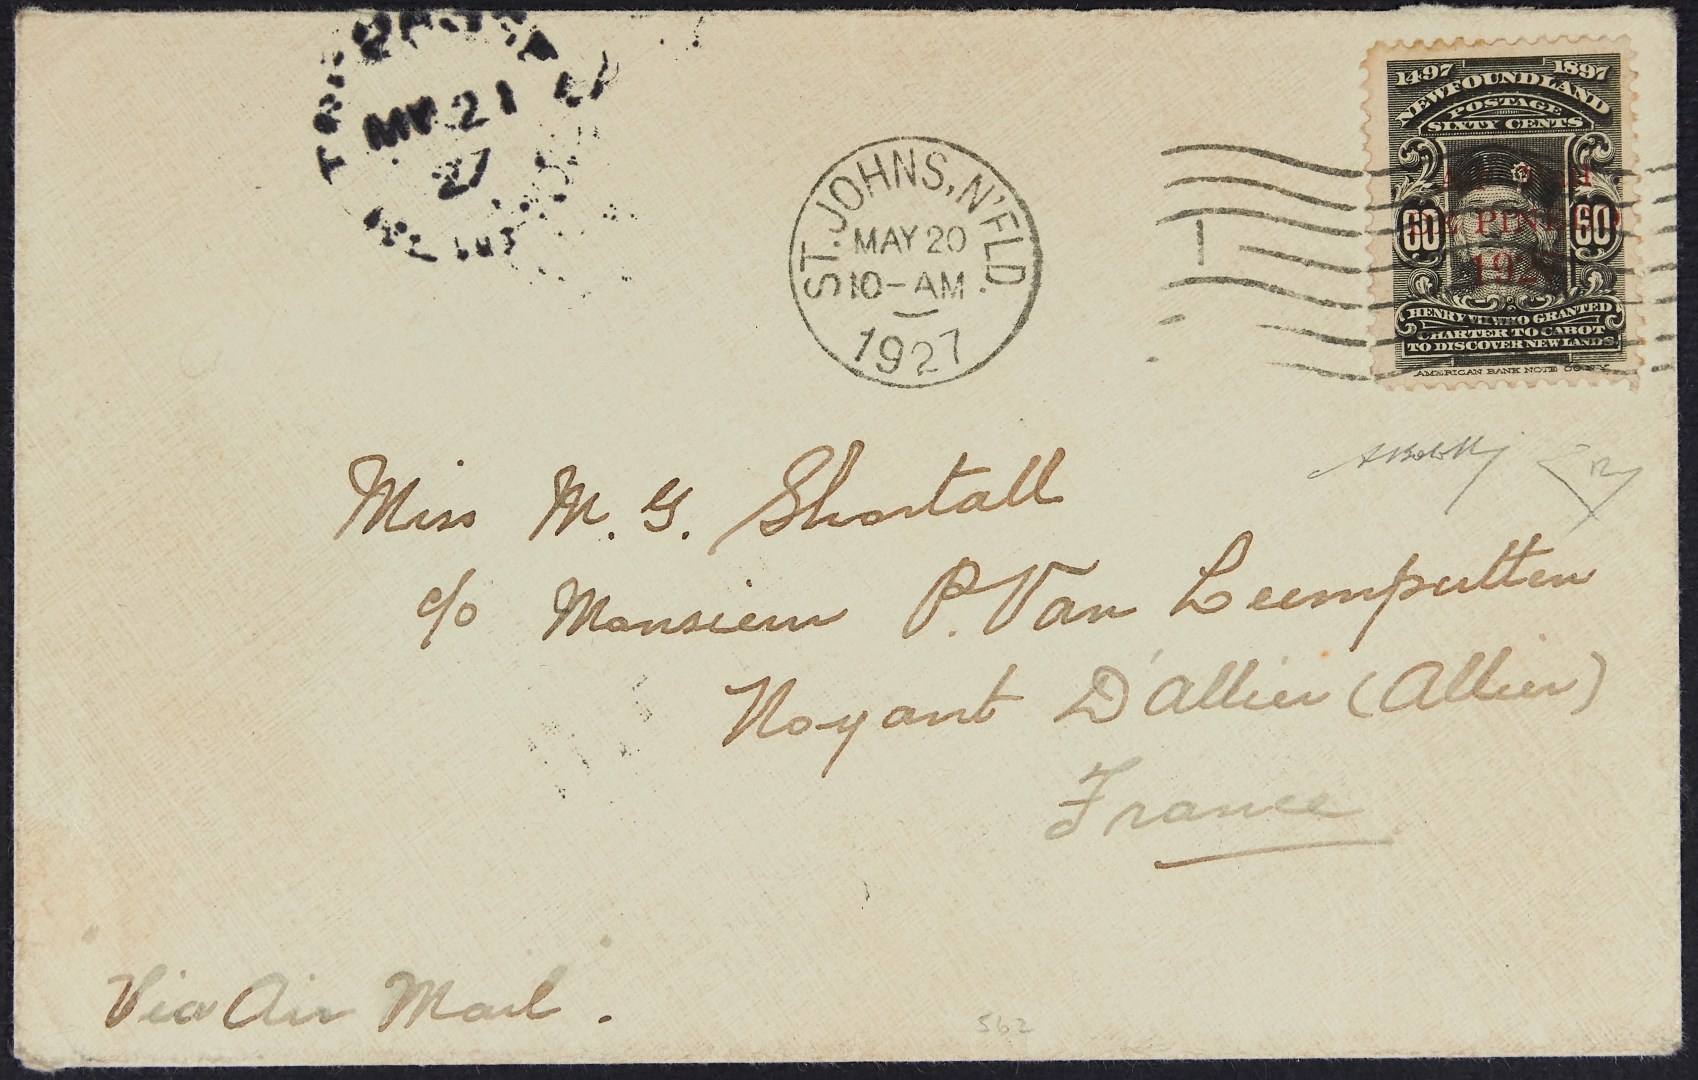 MY 21
27
ST. JOHNS, N'FLD.
MAY 20
10-AM
1927
1497 1897
NEWFOUNDLAND
POSTAGE
SIXTY CENTS
DE PINEDO
60 60
HENRY VII WHO GRANTED
CHARTER TO CABOT
TO DISCOVER NEW LANDS.
AMERICAN BANK NOTE CO. N.Y.
Miss M. G. Shortall
c/o Monsieur P. Van Leemputten
Noyant D'Allier (Allier)
France
Via Air Mail.
562